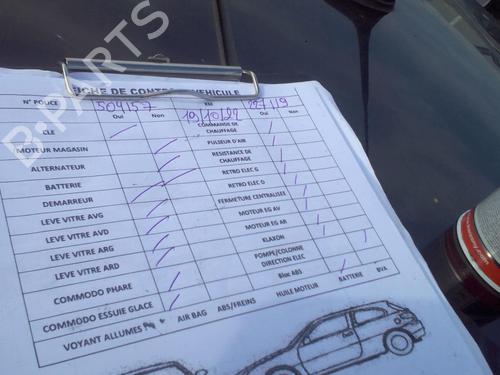 FICHE DE CONTROLE VEHICULE
N° POLICE 504157 KM 227119
Oui Non 19/10/22 Oui Non
CLE COMMANDE DE CHAUFFAGE
MOTEUR MAGASIN PULSEUR D'AIR
ALTERNATEUR RESISTANCE DE CHAUFFAGE
BATTERIE RETRO ELEC G
DEMARREUR RETRO ELEC D
LEVE VITRE AVG FERMETURE CENTRALISEE
LEVE VITRE AVD MOTEUR EG AV
LEVE VITRE ARG MOTEUR EG AR
LEVE VITRE ARD KLAXON
COMMODO PHARE POMPE/COLONNE DIRECTION ELEC
COMMODO ESSUIE GLACE Bloc ABS
VOYANT ALLUMES AIR BAG ABS/FREINS HUILE MOTEUR BATTERIE BVA
B-PARTS